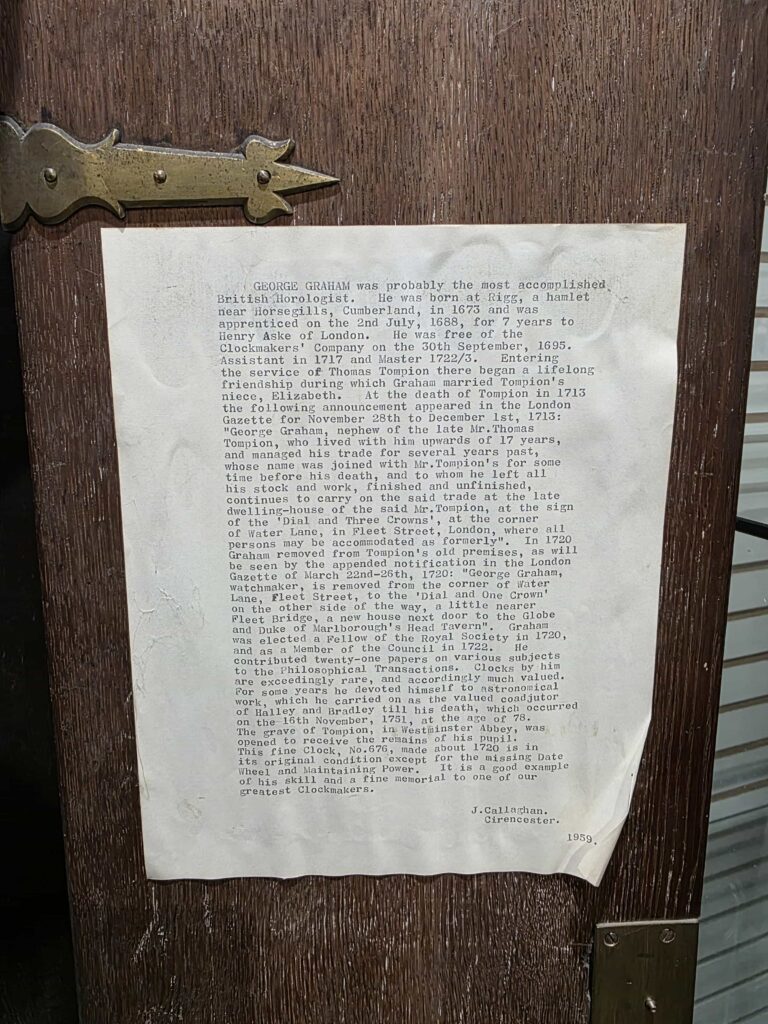 GEORGE GRAHAM was probably the most accomplished
British Horologist. He was born at Rigg, a hamlet
near Horsegills, Cumberland, in 1673 and was
apprenticed on the 2nd July, 1688, for 7 years to
Henry Aske of London. He was free of the
Clockmakers' Company on the 30th September, 1695.
Assistant in 1717 and Master 1722/3. Entering
the service of Thomas Tompion there began a lifelong
friendship during which Graham married Tompion's
niece, Elizabeth. At the death of Tompion in 1713
the following announcement appeared in the London
Gazette for November 28th to December 1st, 1713:
"George Graham, nephew of the late Mr.Thomas
Tompion, who lived with him upwards of 17 years,
and managed his trade for several years past,
whose name was joined with Mr.Tompion's for some
time before his death, and to whom he left all
his stock and work, finished and unfinished,
continues to carry on the said trade at the late
dwelling-house of the said Mr.Tompion, at the sign
of the 'Dial and Three Crowns', at the corner
of Water Lane, in Fleet Street, London, where all
persons may be accommodated as formerly". In 1720
Graham removed from Tompion's old premises, as will
be seen by the appended notification in the London
Gazette of March 22nd-26th, 1720: "George Graham,
watchmaker, is removed from the corner of Water
Lane, Fleet Street, to the 'Dial and One Crown'
on the other side of the way, a little nearer
Fleet Bridge, a new house next door to the Globe
and Duke of Marlborough's Head Tavern". Graham
was elected a Fellow of the Royal Society in 1720,
and as a Member of the Council in 1722. He
contributed twenty-one papers on various subjects
to the Philosophical Transactions. Clocks by him
are exceedingly rare, and accordingly much valued.
For some years he devoted himself to astronomical
work, which he carried on as the valued coadjutor
of Halley and Bradley till his death, which occurred
on the 16th November, 1751, at the age of 78.
The grave of Tompion, in Westminster Abbey, was
opened to receive the remains of his pupil.
This fine Clock, No.676, made about 1720 is in
its original condition except for the missing Date
Wheel and Maintaining Power. It is a good example
of his skill and a fine memorial to one of our
greatest Clockmakers.
J.Callaghan.
Cirencester.
1959.